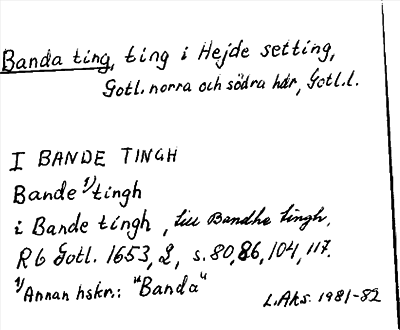 Banda ting, ting i Hejde setting,
Gotl. norra och södra hdr, Gotl.l.
I BANDE TINGH
Bande 1) tingh
i Bande tingh, till Bandhe tingh,
R6 Gotl. 1653,2, s.80,86,104,117.
1) Annan hskr.: "Banda"
L.Aks. 1981-82